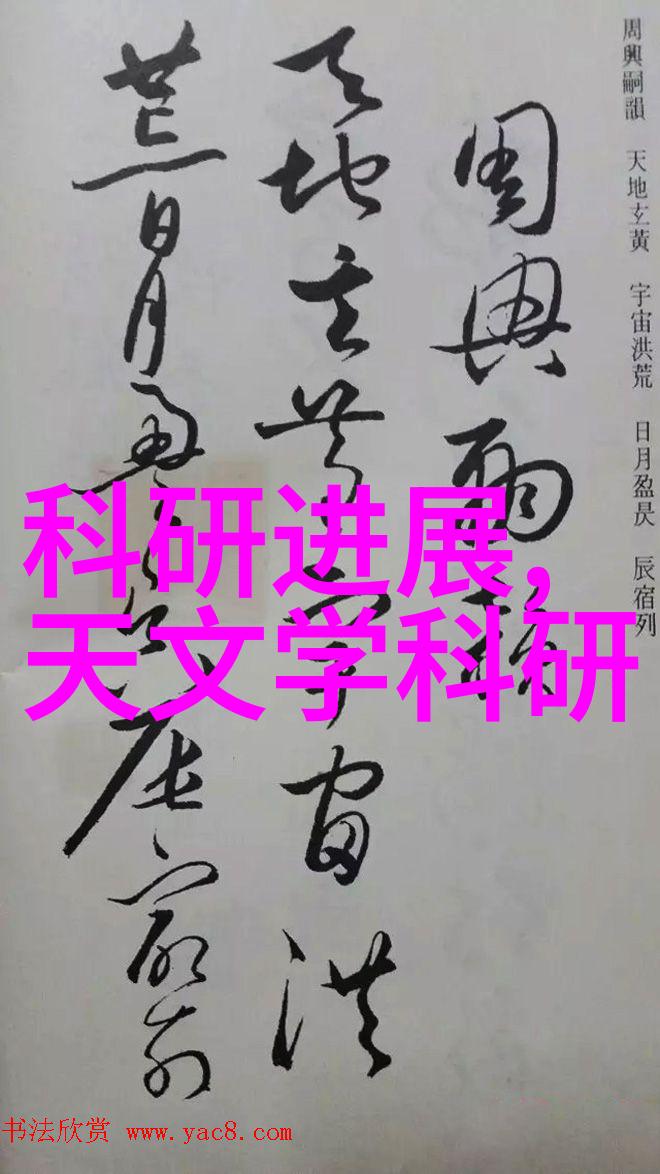 周興嗣韻 天地玄黃 宇宙洪荒 日月盈昃 辰宿列
周興嗣韻
天地玄黃宇宙洪
荒日月盈昃辰宿列
科研进展,
天文学科研
书法欣赏 www.yac8.com